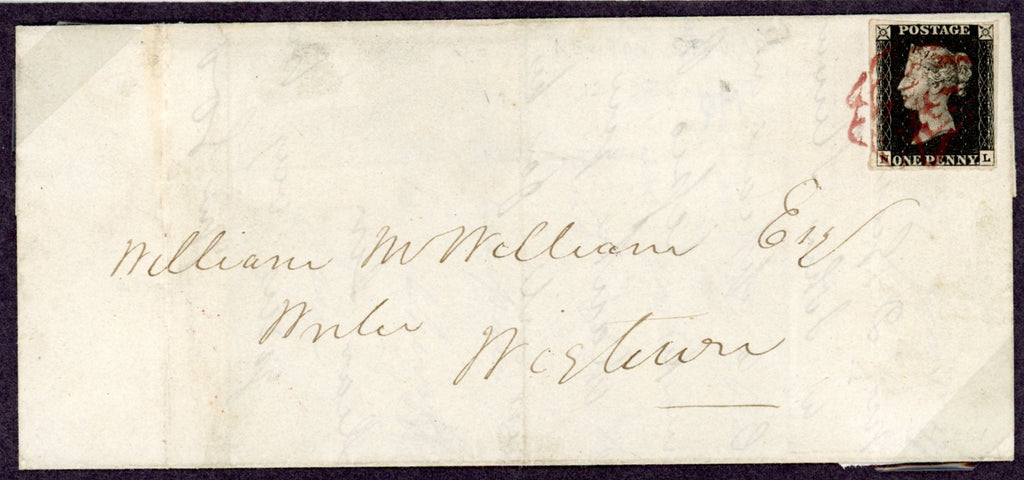 POSTAGE
N L
ONE PENNY
William McWilliam Esq
Writer
Wigtown